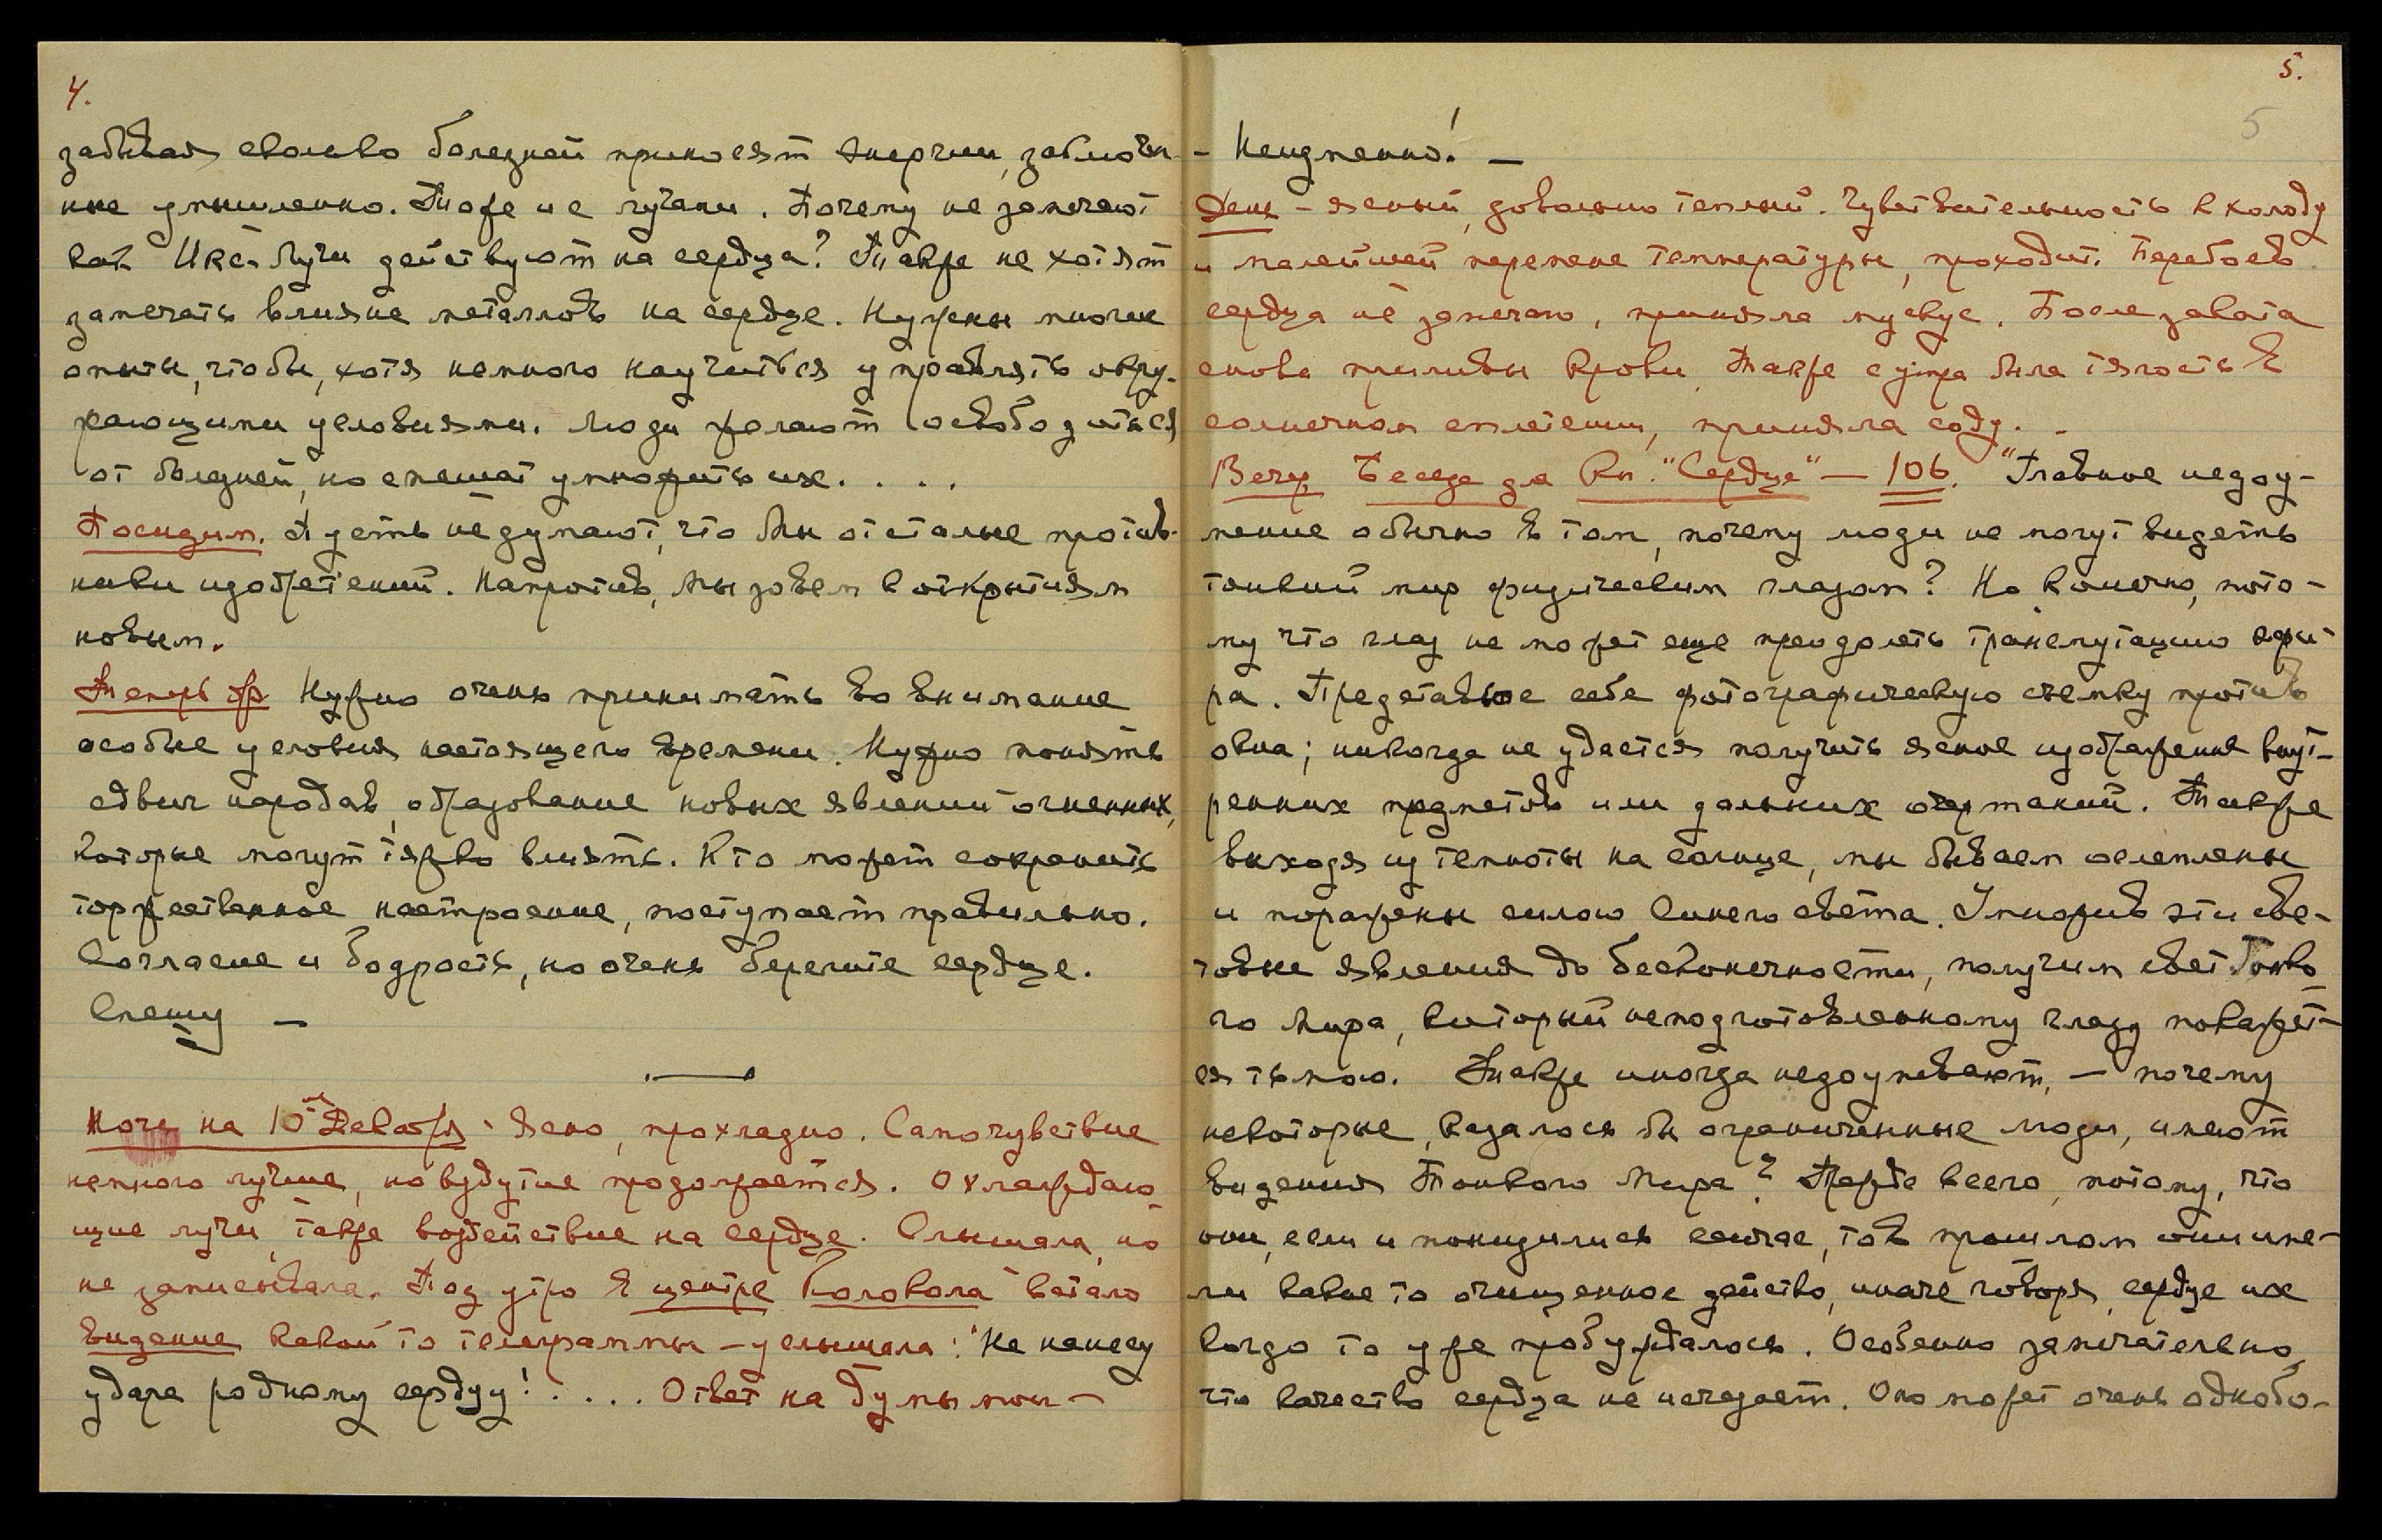 4.
забывая сколько болезней приносят энергии, заключен-
ные умышленно. То же и с лучами. Почему не замечают
как Икс-Лучи действуют на сердце? Также не хотят
замечать влияние металлов на сердце. Нужны многие
опыты, чтобы, хотя немного научиться управлять окру-
жающими условиями. Люди желают освободиться
от болезней, но спешат умножить их. . . .
Посидим. Пусть не думают, что Мы отсталые против-
ники изобретений. Напротив, Мы зовем к открытиям
новым.
Теперь др. Нужно очень принимать во внимание
особые условия настоящего времени. Нужно понять
сдвиг народов, образование новых явлений огненных,
которые могут тяжко влиять. Кто может сохранить
торжественное настроение, поступает правильно.
Согласие и бодрость, но очень берегите сердце.
Спешу —
Ночь на 10ое Декабря - Ясно, прохладно. Самочувствие
немного лучше, но вздутие продолжается. Охлаждаю-
щие лучи, также воздействие на сердце. Слышала, но
не записывала. Под утро в центре Колокола встало
видение какой то телеграммы - услышала: "Не нанесу
удара родному сердцу! . . . . Ответ на думы мои —
5.
5
— Неизменно! —
День - ясный, довольно теплый. Чувствительность к холоду
и малейшей перемене температуры, проходит. Перебоев
сердца не замечаю, приняла мускус. После завтрака
снова приливы крови. Также с утра была тягость в
солнечном сплетении, приняла соду.
Вечер. Беседа для Кн. "Сердце" — 106. "Главное недоу-
мение обычно в том, почему люди не могут видеть
тонкий мир физическим глазом? Но, конечно, пото-
му что глаз не может еще преодолеть трансмутацию эфи-
ра. Представьте себе фотографическую съемку против
окна; никогда не удается получить ясное изображение внут-
ренних предметов или дальних очертаний. Также
выходя из темноты на солнце, мы бываем ослеплены
и поражены силою синего света. Умножив эти све-
товые явления до бесконечности, получим свет Тонко-
го Мира, который неподготовленному глазу покажет-
ся тьмою. Также иногда недоумевают, — почему
некоторые, казалось бы ограниченные люди, имеют
видения Тонкого Мира? Прежде всего, потому, что
они, если и понизились сейчас, то в прошлом они име-
ли какое то очищенное действо, иначе говоря, сердце их
когда то уже пробуждалось. Особенно замечательно,
что качество сердца не исчезает. Оно может очень однобо-